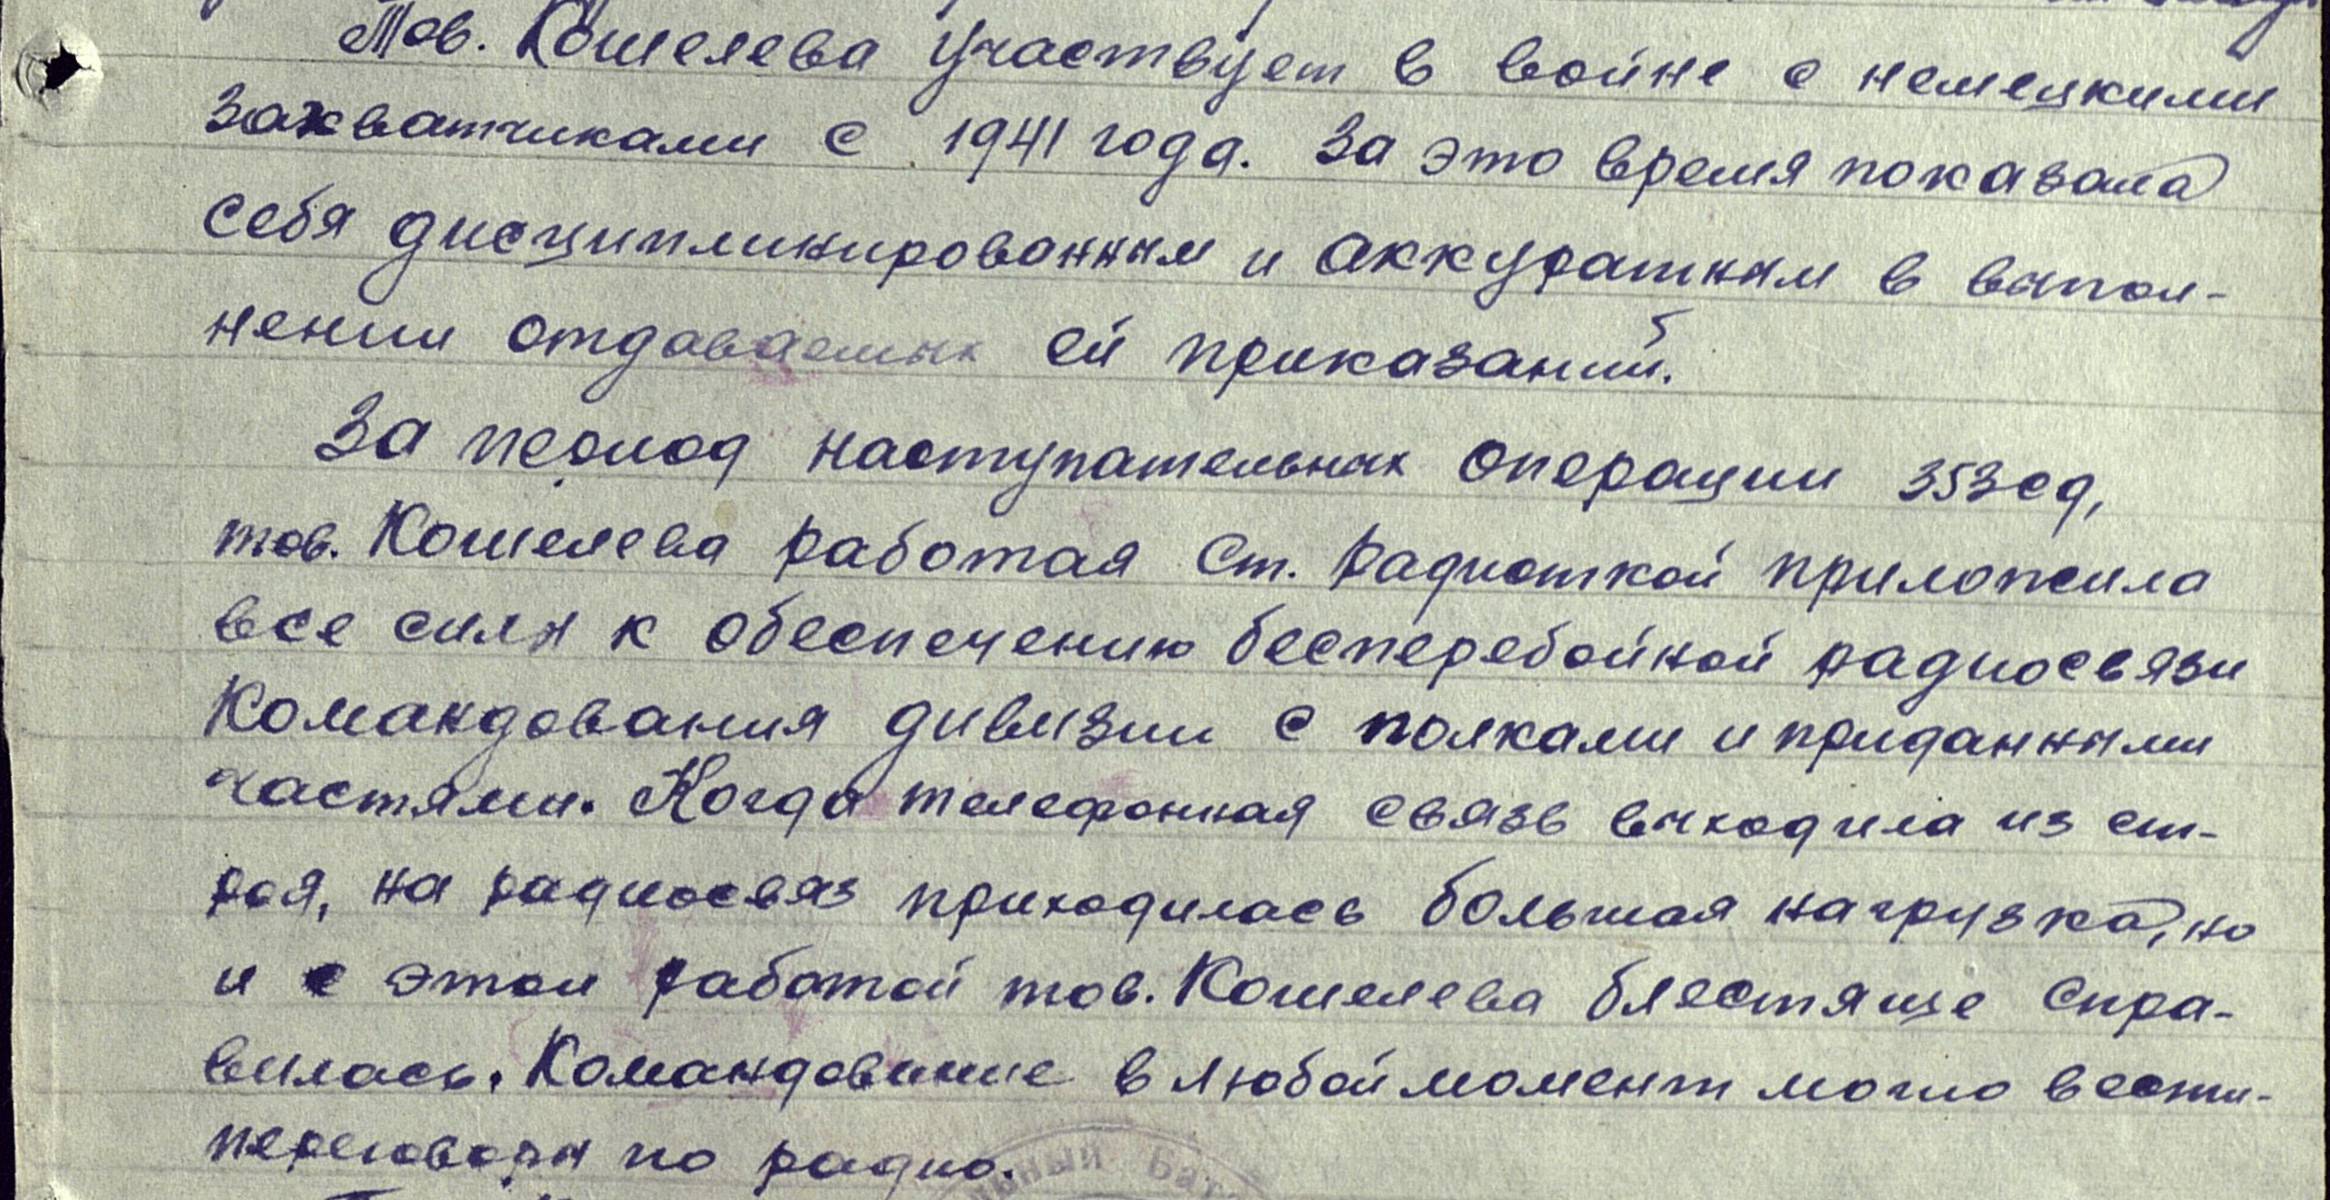 Тов. Кошелева участвует в войне с немецкими
захватчиками с 1941 года. За это время показала
себя дисциплинированным и аккуратным в выпол-
нении отдаваемых ей приказаний.
За период наступательных операции 353сд,
тов. Кошелева работая ст. радисткой приложила
все силы к обеспечению бесперебойной радиосвязи
командования дивизии с полками и приданными
частями. Когда телефонная связь выходила из ст-
роя, на радиосвяз приходилась большая нагрузка, но
и с этой работой тов. Кошелева блестяще спра-
вилась. Командование в любой момент могло вести-
переговоры по радио.
льный Бата